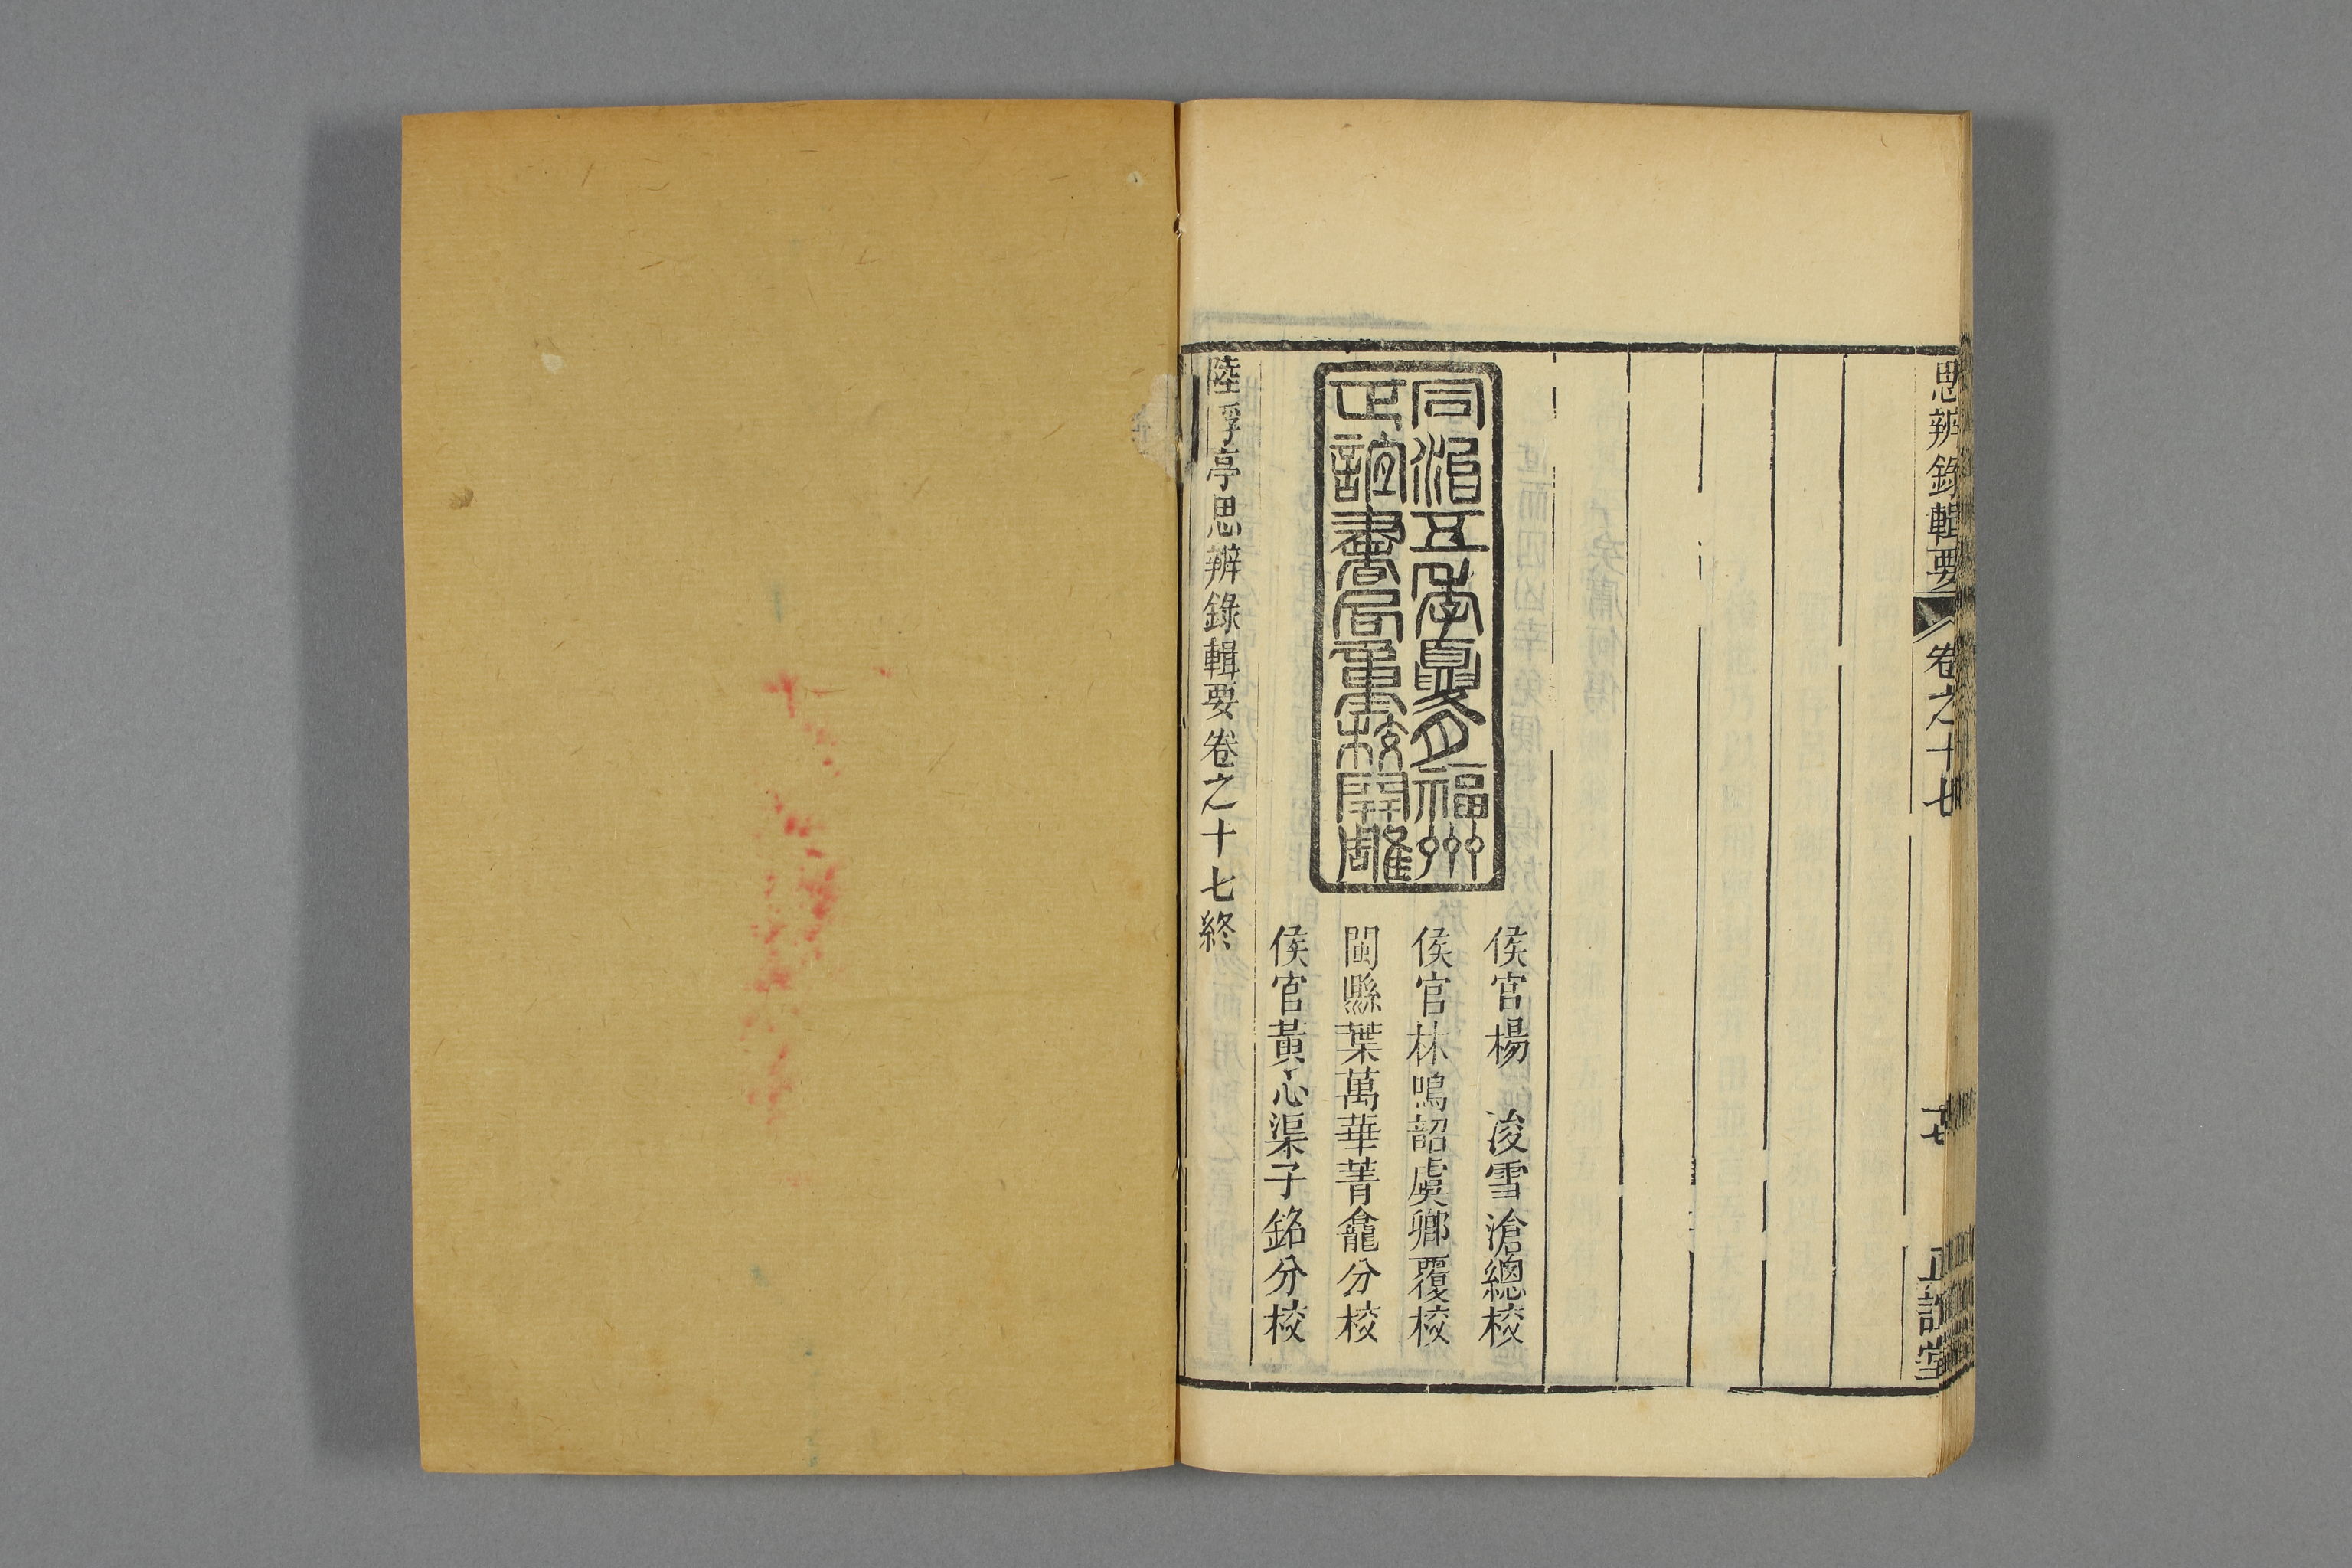 思辨錄輯要
卷之十七
十七
正誼堂
同治五年夏月福州
正誼書局重校開雕
侯官楊 浚雪滄總校
侯官林鳴韶虞卿覆校
閩縣葉萬華菁龕分校
侯官黃心渠子銘分校
陸桴亭思辨錄輯要卷之十七終